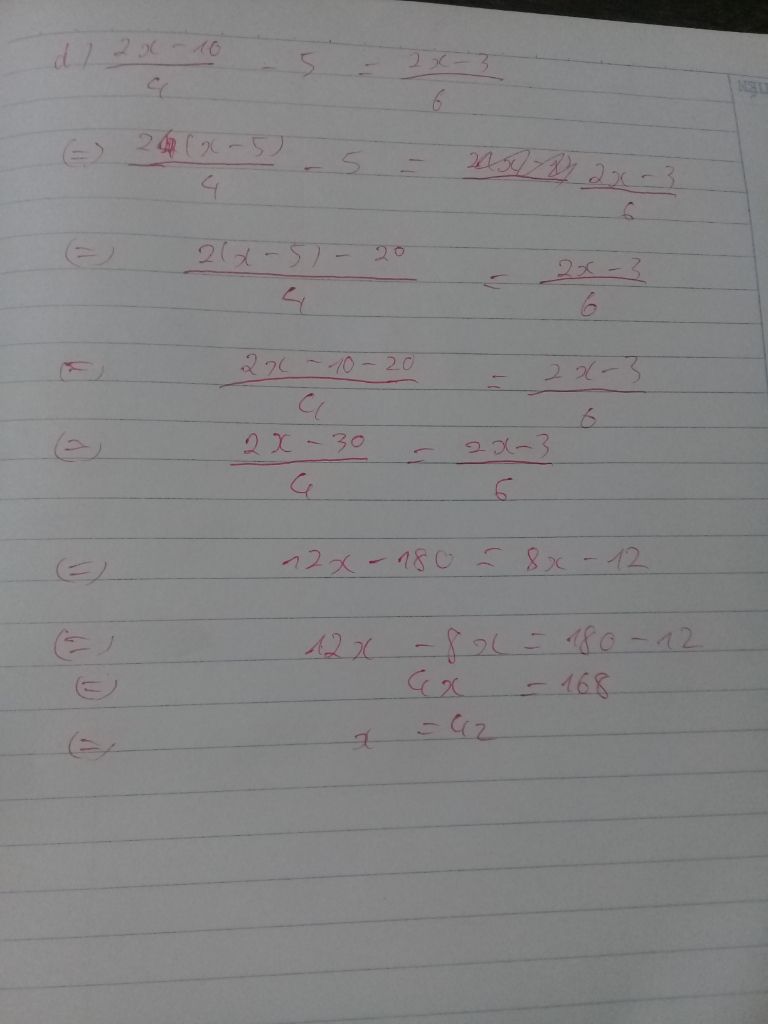 d) (2x - 10)/4 - 5 = (2x - 3)/6
(=) 2(x - 5)/4 - 5 = (2x - 3)/6
(=) (2(x - 5) - 20)/4 = (2x - 3)/6
(=) (2x - 10 - 20)/4 = (2x - 3)/6
(=) (2x - 30)/4 = (2x - 3)/6
(=) 12x - 180 = 8x - 12
(=) 12x - 8x = 180 - 12
(=) 4x = 168
(=) x = 42